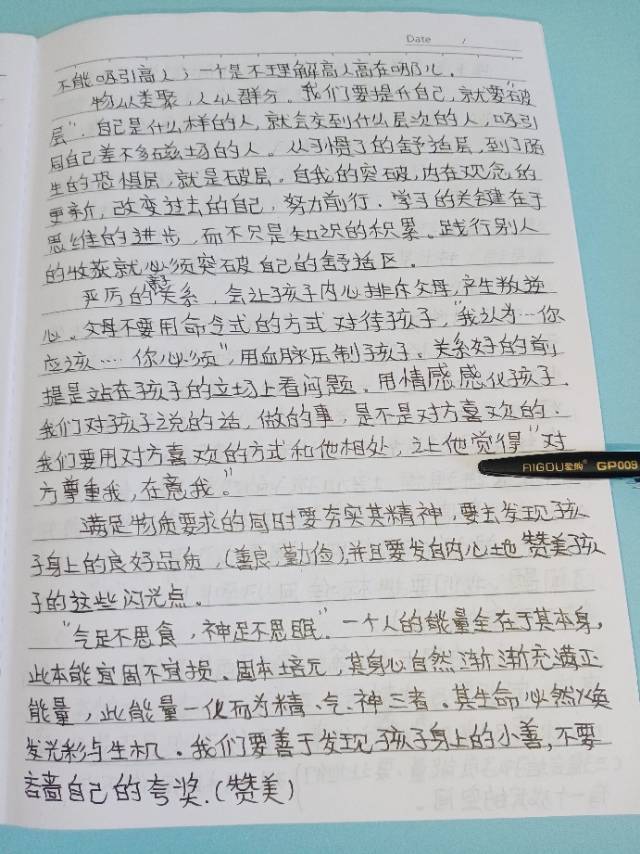 Date /
不能吸引高人;一个是不理解高人高在哪儿.
物以类聚,人以群分。我们要提升自己,就要"破
层".自己是什么样的人,就会交到什么层次的人,吸引
同自己差不多磁场的人。从习惯了的舒适层,到了陌
生的恐惧层,就是破层。自我的突破,内在观念的
更新,改变过去的自己,努力前行.学习的关键在于
思维的进步,而不只是知识的积累。践行别人
的收获就必须突破自己的舒适区。
严厉的亲子关系,会让孩子内心排斥父母,产生叛逆
心。父母不要用命令式的方式对待孩子,"我认为…你
应该……你必须",用血脉压制孩子。关系好的前
提是站在孩子的立场上看问题。用情感感化孩子.
我们对孩子说的话,做的事,是不是对方喜欢的.
我们要用对方喜欢的方式和他相处,让他觉得"对
方尊重我,在意我。"
AIGOU爱购 GP009
满足物质要求的同时要夯实其精神,要去发现孩
子身上的良好品质,(善良,勤俭),并且要发自内心地赞美孩
子的这些闪光点。
"气足不思食,神足不思眠"一个人的能量全在于其本身,
此本能宜固不宜损。固本培元,其身心自然渐渐充满正
能量,此能量一化而为精、气、神三者。其生命必然焕
发光彩与生机。我们要善于发现孩子身上的小善,不要
吝啬自己的夸奖.(赞美)